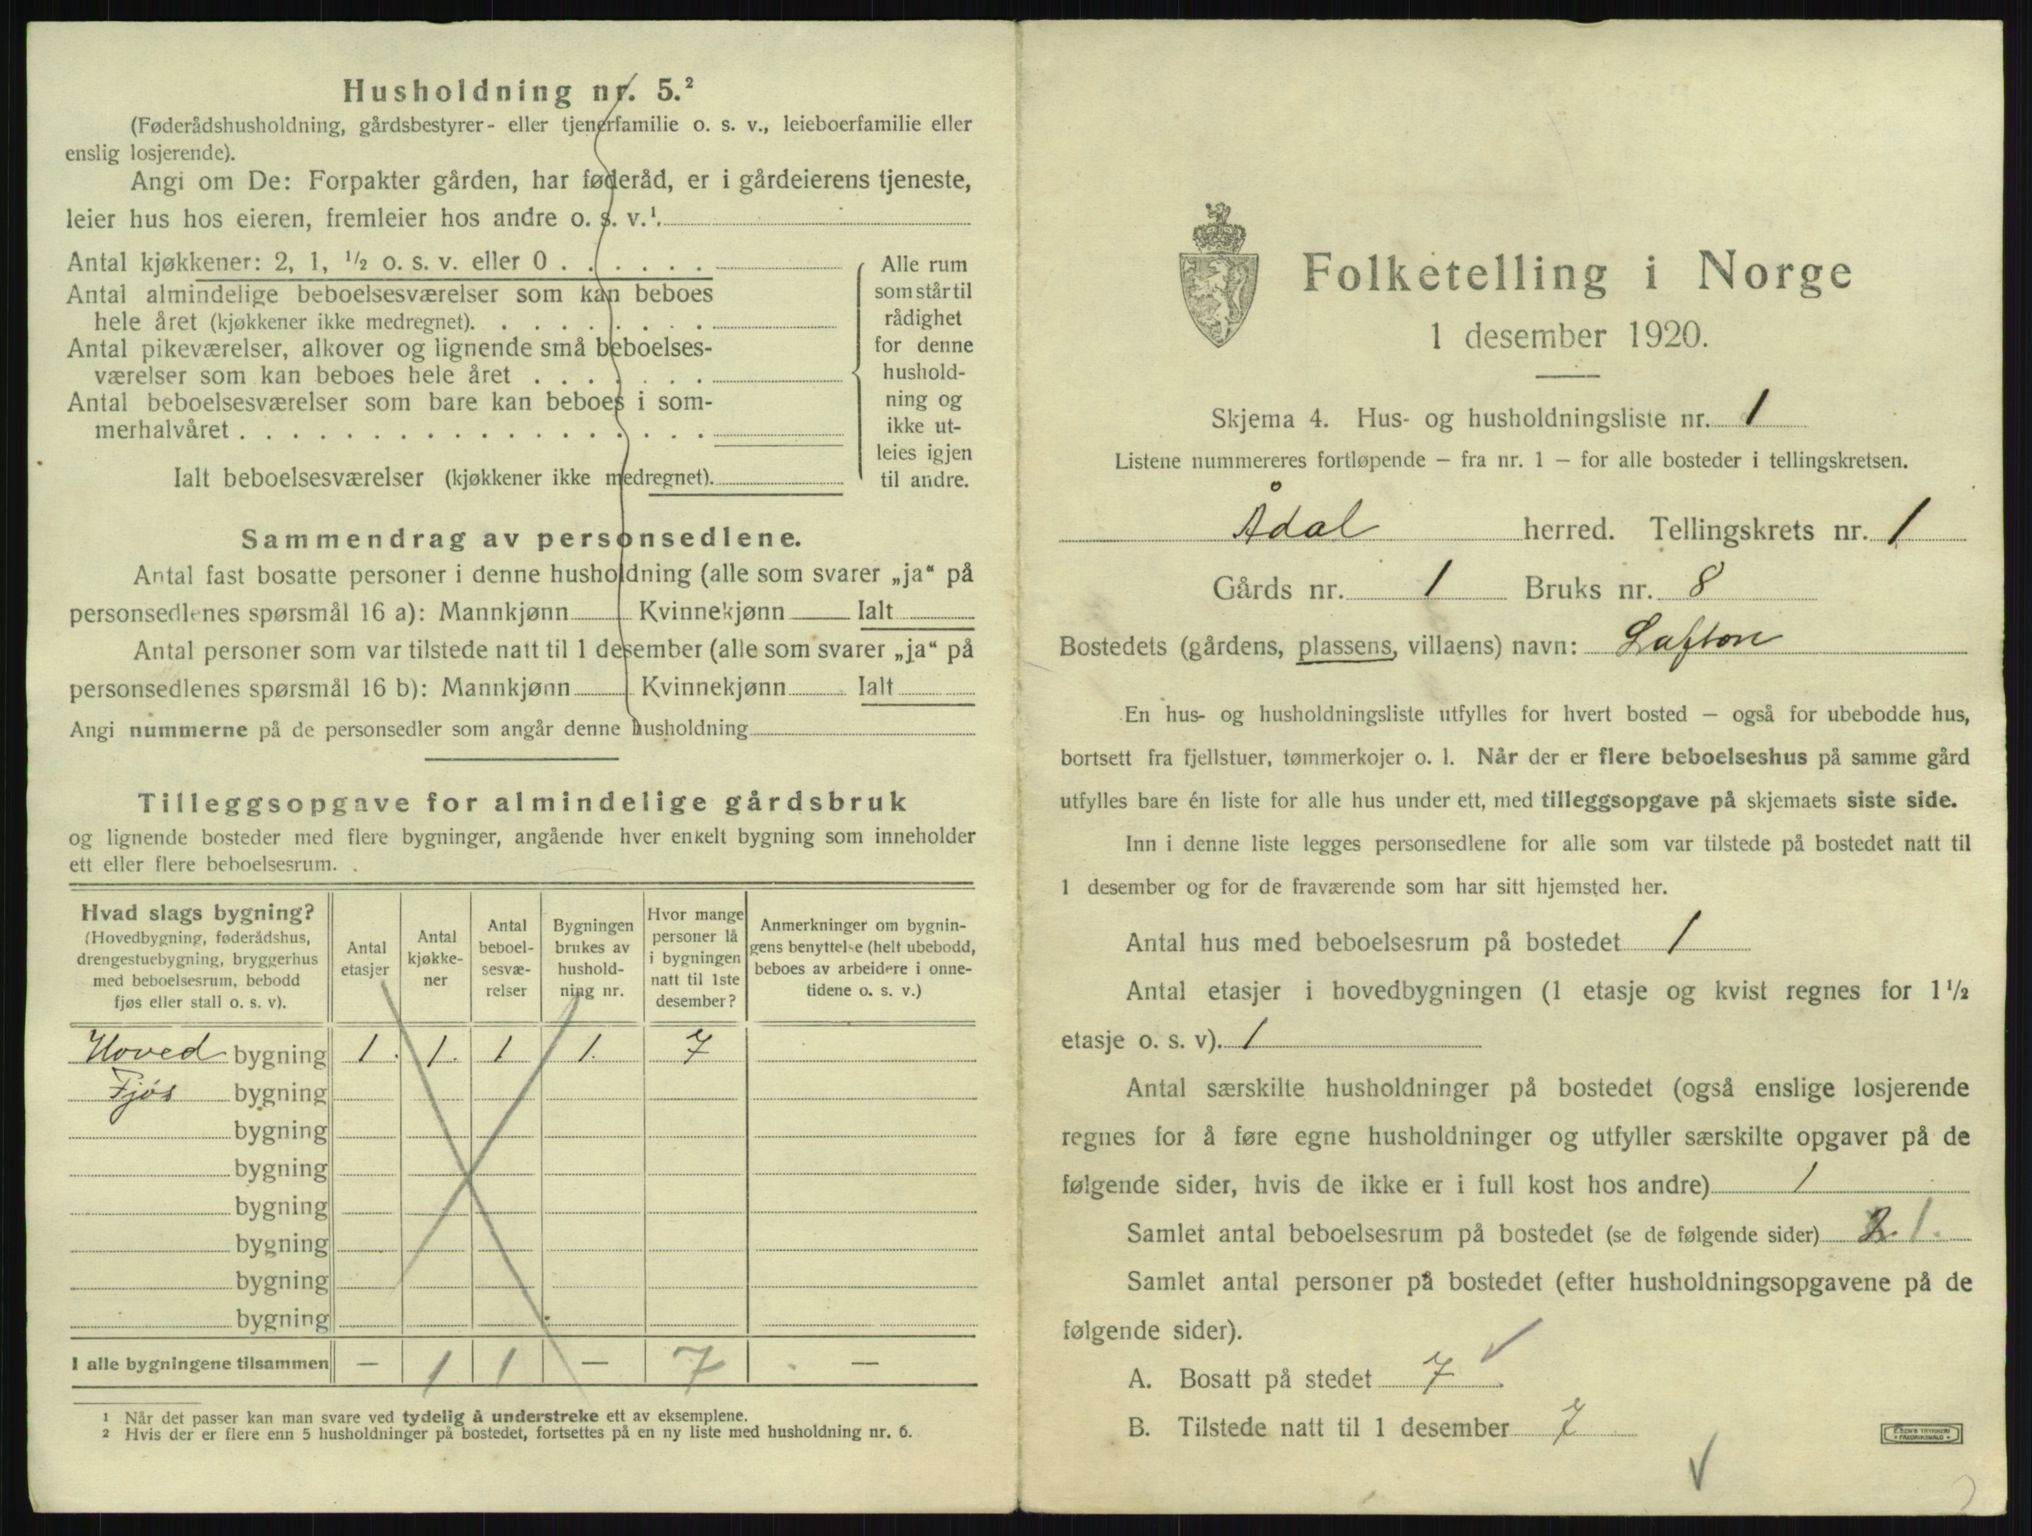 Husholdning nr. 5.²
(Føderådshusholdning, gårdsbestyrer- eller tjenerfamilie o. s. v., leieboerfamilie eller
enslig losjerende).
Angi om De: Forpakter gården, har føderåd, er i gårdeierens tjeneste,
leier hus hos eieren, fremleier hos andre o. s. v.¹.
Antal kjøkkener: 2, 1, ½ o. s. v. eller 0 . . . . . .
Antal almindelige beboelsesværelser som kan beboes
hele året (kjøkkener ikke medregnet). . . . . . . . .
Antal pikeværelser, alkover og lignende små beboelses-
værelser som kan beboes hele året . . . . . . .
Antal beboelsesværelser som bare kan beboes i som-
merhalvåret . . . . . . . . . . . . . . . . . .
Ialt beboelsesværelser (kjøkkener ikke medregnet).
Alle rum
som står til
rådighet
for denne
hushold-
ning og
ikke ut-
leies igjen
til andre.
Sammendrag av personsedlene.
Antal fast bosatte personer i denne husholdning (alle som svarer „ja“ på
personsedlenes spørsmål 16 a): Mannkjønn Kvinnekjønn Ialt
Antal personer som var tilstede natt til 1 desember (alle som svarer „ja“ på
personsedlenes spørsmål 16 b): Mannkjønn Kvinnekjønn Ialt
Angi nummerne på de personsedler som angår denne husholdning
Tilleggsopgave for almindelige gårdsbruk
og lignende bosteder med flere bygninger, angående hver enkelt bygning som inneholder
ett eller flere beboelsesrum.
Hvad slags bygning?
(Hovedbygning, føderådshus,
drengestuebygning, bryggerhus
med beboelsesrum, bebodd
fjøs eller stall o. s. v).
Antal
etasjer
Antal
kjøkke-
ner
Antal
beboel-
sesvæ-
relser
Bygningen
brukes av
hushold-
ning nr.
Hvor mange
personer lå
i bygningen
natt til 1ste
desember?
Anmerkninger om bygnin-
gens benyttelse (helt ubebodd,
beboes av arbeidere i onne-
tidene o. s. v.)
Hoved bygning 1. 1. 1 1. 7
Fjøs bygning
bygning
bygning
bygning
bygning
bygning
bygning
I alle bygningene tilsammen — 1 1 — 7 —
¹ Når det passer kan man svare ved tydelig å understreke ett av eksemplene.
² Hvis der er flere enn 5 husholdninger på bostedet, fortsettes på en ny liste med husholdning nr. 6.
Folketelling i Norge
1 desember 1920.
Skjema 4. Hus- og husholdningsliste nr. 1
Listene nummereres fortløpende — fra nr. 1 — for alle bosteder i tellingskretsen.
Ådal herred. Tellingskrets nr. 1
Gårds nr. 1 Bruks nr. 8
Bostedets (gårdens, plassens, villaens) navn: Lafton
En hus- og husholdningsliste utfylles for hvert bosted — også for ubebodde hus,
bortsett fra fjellstuer, tømmerkojer o. l. Når der er flere beboelseshus på samme gård
utfylles bare én liste for alle hus under ett, med tilleggsopgave på skjemaets siste side.
Inn i denne liste legges personsedlene for alle som var tilstede på bostedet natt til
1 desember og for de fraværende som har sitt hjemsted her.
Antal hus med beboelsesrum på bostedet 1
Antal etasjer i hovedbygningen (1 etasje og kvist regnes for 1 ½
etasje o. s. v). 1
Antal særskilte husholdninger på bostedet (også enslige losjerende
regnes for å føre egne husholdninger og utfyller særskilte opgaver på de
følgende sider, hvis de ikke er i full kost hos andre) 1
Samlet antal beboelsesrum på bostedet (se de følgende sider) 2. 1.
Samlet antal personer på bostedet (efter husholdningsopgavene på de
følgende sider).
A. Bosatt på stedet 7
B. Tilstede natt til 1 desember 7